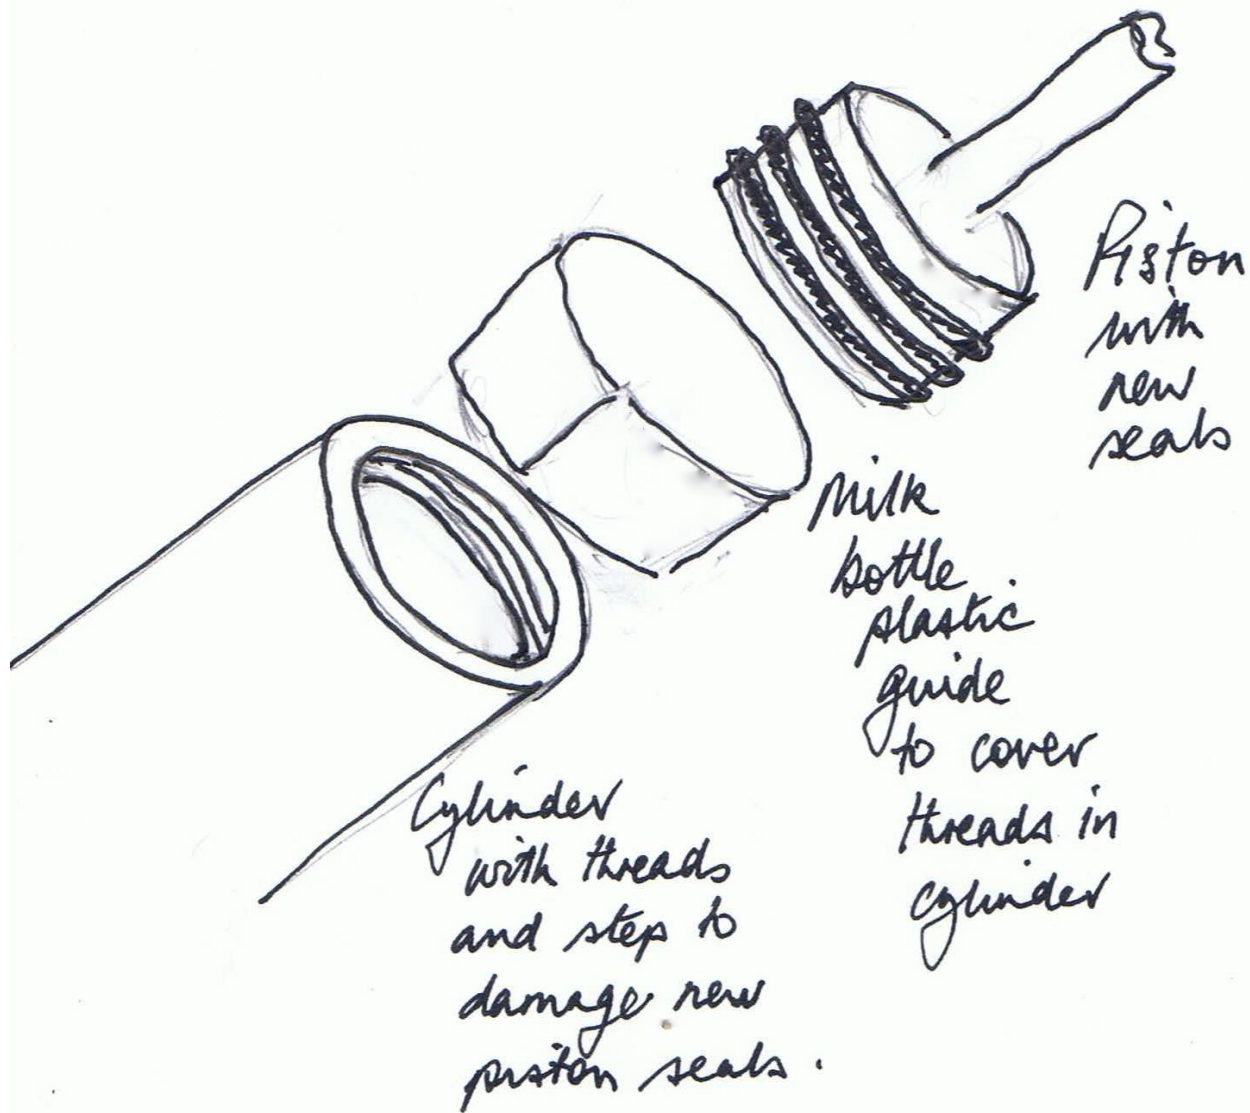 Piston
with
new
seals
Milk
bottle
plastic
guide
to cover
threads in
cylinder
Cylinder
with threads
and step to
damage new
piston seals.